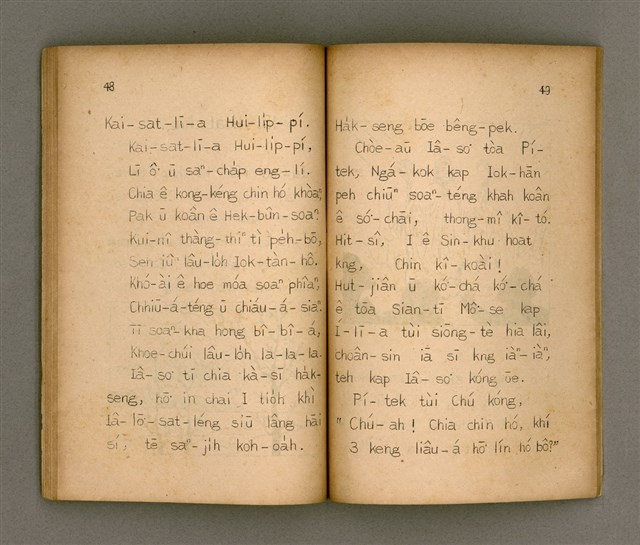 48
Kai-sat-lī-a Hui-li̍p-pí.
Kai-sat-lī-a Hui-li̍p-pí,
Lī ô͘ ū saⁿ-cha̍p eng-lí.
Chia ê kong-kéng chin hó khòaⁿ,
Pak ū koân ê Hek-bûn-soaⁿ.
Kui-nî thàng-thiⁿ tì pe̍h-bō,
Sen iûⁿ lâu-lo̍h Iok-tàn-hô.
Khó-ài ê hoe móa soaⁿ phiâⁿ,
Chhiū-á-téng ū chiáu-á-siaⁿ.
Tī soaⁿ-kha hong bî-bî-á,
Khoe-chúi lâu-lo̍h la-la-la.
Iâ-so͘ tī chia kà-sī ha̍k-
seng, hō͘ in chai I tio̍h khì
Iâ-lō͘-sat-léng siū lâng hāi
sí, tē saⁿ-ji̍h koh-oa̍h.
49
Ha̍k-seng bōe bêng-pek.
Chòe-aū Iâ-so͘ tòa Pí-
tek, Ngá-kok kap Iok-hān
peh chiūⁿ soaⁿ-téng khah koân
ê só͘-chāi, thong-mî kî-tó.
Hit-sî, I ê Sin-khu hoat
kng, Chin kî-koài!
Hut-jiân ū kó͘-chá kó͘-chá
ê tōa Sian-tī Mô͘-se kap
Í-lī-a tùi siōng-tè hia lâi,
choân-sin iā sī kng iàⁿ-iàⁿ,
teh kap Iâ-so͘ kóng ōe.
Pí-tek tùi Chú kóng,
"Chú-ah! Chia chin hó, khí
3 keng liâu-á hō͘ lín hó bô?"